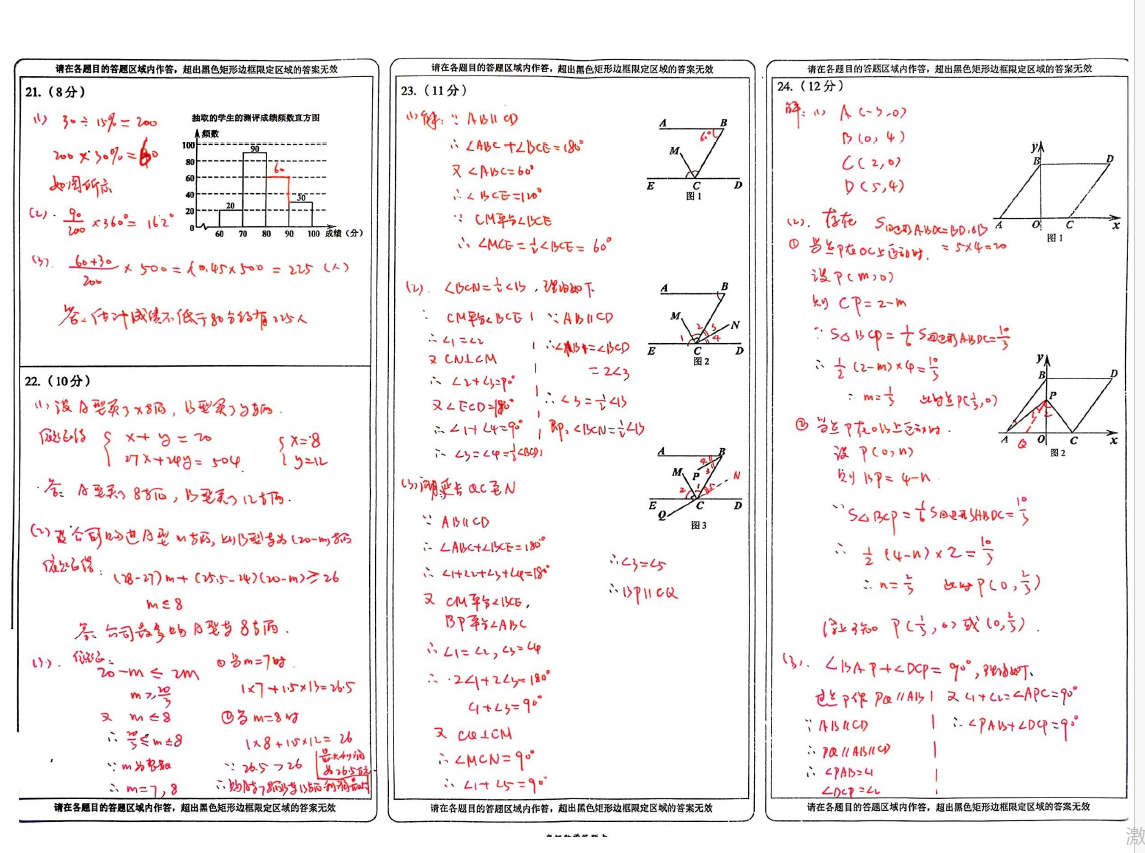 请在各题目的答题区域内作答，超出黑色矩形边框限定区域的答案无效
21.（8分）
(1) 30÷15%=200
200×30%=60
如图所示
(2). 90/200 ×360°= 162°
(3). 60+30/200 × 500 = 0.45×500 = 225 (人)
答：估计成绩不低于80分的有225人
抽取的学生的测评成绩频数直方图
频数
100
80
60
40
20
0
20
90
60
30
60 70 80 90 100 成绩（分）
22.（10分）
(1) 设A型买了x台, B型买了y台.
依题意得 { x+y=20
27x+24y=504.
{ x=8
y=12
答: A型买了8台, B型买了12台.
(2)
(28-27)m+(25.5-24)(20-m)≥26
m≤8
(3). 依题意:
20-m ≤ 2m
m≥20/3
又 m≤8
∴ 20/3≤m≤8
∵ m为整数
∴ m=7,8
①当m=7时
1×7+1.5×13=26.5
②当m=8时
1×8+1.5×12=26
∵ 26.5>26
请在各题目的答题区域内作答，超出黑色矩形边框限定区域的答案无效
请在各题目的答题区域内作答，超出黑色矩形边框限定区域的答案无效
23.（11分）
(1)解: ∵ AB∥CD
∴ ∠ABC+∠BCE=180°
又∠ABC=60°
∴ ∠BCE=120°
∵ CM平分∠BCE
∴ ∠MCE=½∠BCE=60°
A B
60°
M
E C D
图1
(2). ∠BCN=½∠B, 理由如下
∵ CM平分∠BCE
∴∠1=∠2
又 CN⊥CM
∴ ∠2+∠3=90°
又∠ECD=180°
∴∠1+∠4=90°
∴ ∠3=∠4=½∠BCD
∵AB∥CD
∴∠B=∠BCD
=2∠3
∴∠3=½∠B
即: ∠BCN=½∠B
A B
M N
1 2 3 4
E C D
图2
(3) 延长QC至N
∵ AB∥CD
∴ ∠ABC+∠BCE=180°
∴ ∠1+∠2+∠3+∠4=180°
又 CM平分∠BCE,
BP平分∠ABC
∴∠1=∠2, ∠3=∠4
∴ 2∠1+2∠3=180°
∠1+∠3=90°
又 CQ⊥CM
∴ ∠MCN=90°
∴ ∠1+∠5=90°
∴∠3=∠5
∴BP∥CQ
A B
M P N
E C D
Q
图3
请在各题目的答题区域内作答，超出黑色矩形边框限定区域的答案无效
请在各题目的答题区域内作答，超出黑色矩形边框限定区域的答案无效
24.（12分）
解: (1) A(-3,0)
B(0,4)
C(2,0)
D(5,4)
y
B D
A O C x
图1
(2). 存在 S四边形ABDC=BD·OB
=5×4=20
①当点P在OC上运动时.
设P(m,0)
则 CP=2-m
∵ S△BCP=1/6 S四边形ABDC=10/3
∴ ½(2-m)×4=10/3
∴ m=1/3 此时点P(1/3,0)
②当点P在OB上运动时.
设 P(0,n)
则 BP=4-n
∵ S△BCP=1/6 S四边形ABDC=10/3
∴ ½(4-n)×2=10/3
∴ n=2/3 此时P(0,2/3)
综上可知 P(1/3,0)或(0,2/3).
y
B D
P
1 2
A Q O C x
图2
(3). ∠BAP+∠DCP=90°, 理由如下.
过点P作PQ∥AB
∵ AB∥CD
∴ PQ∥AB∥CD
∴ ∠PAB=∠1
∠DCP=∠2
又∠1+∠2=∠APC=90°
∴ ∠PAB+∠DCP=90°
请在各题目的答题区域内作答，超出黑色矩形边框限定区域的答案无效
激